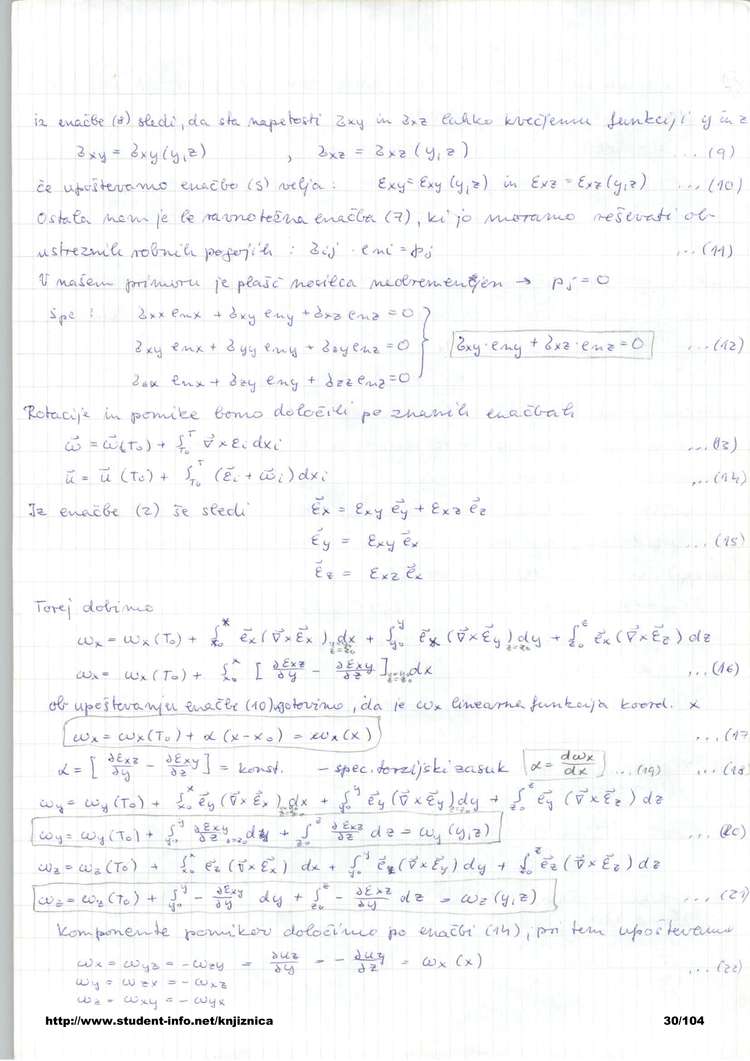 iz enačbe (8) sledi, da sta napetosti σxy in σxz lahko kvečjemu funkciji y in z
σxy = σxy(y,z) , σxz = σxz(y,z) ...(9)
če upoštevamo enačbo (5) velja: εxy = εxy(y,z) in εxz = εxz(y,z) ...(10)
Ostala nam je le ravnotežna enačba (7), ki jo moramo reševati ob
ustreznih robnih pogojih: σij · eni = pj ...(11)
V našem primeru je plašč nosilca neobremenjen → pj = 0
σxx enx + σxy eny + σxz enz = 0
σxy enx + σyy eny + σzy enz = 0 } σxy·eny + σxz·enz = 0 ...(12)
enx + σzy eny + σzz enz = 0
Rotacije in pomike bomo določili po znanih enačbah
ω⃗ = ω⃗(T₀) + ∫_{T₀}^{T} ∇⃗ × εi dxi ...(13)
u⃗ = u⃗(T₀) + ∫_{T₀}^{T} (ε⃗i + ω⃗i) dxi ...(14)
Iz enačbe (2) še sledi ε⃗x = εxy e⃗y + εxz e⃗z
ε⃗y = εxy e⃗x ...(15)
ε⃗z = εxz e⃗x
Torej dobimo
ωx = ωx(T₀) + ∫_{x₀}^{x} e⃗x(∇⃗×ε⃗x) dx + ∫_{y₀}^{y} e⃗x(∇⃗×ε⃗y) dy + ∫_{z₀}^{z} e⃗x(∇⃗×ε⃗z) dz
ωx = ωx(T₀) + ∫_{x₀}^{x} [∂εxz/∂y - ∂εxy/∂z] dx ...(16)
ob upoštevanju enačbe (10) ugotovimo, da je ωx linearna funkcija koord. x
ωx = ωx(T₀) + α(x-x₀) = ωx(x) ...(17
α = [∂εxz/∂y - ∂εxy/∂z] = konst. - spec. torzijski zasuk α = dωx/dx ...(19) ...(18
ωy = ωy(T₀) + ∫_{x₀}^{x} e⃗y(∇⃗×ε⃗x) dx + ∫_{y₀}^{y} e⃗y(∇⃗×ε⃗y) dy + ∫_{z₀}^{z} e⃗y(∇⃗×ε⃗z) dz
ωy = ωy(T₀) + ∫_{y₀}^{y} ∂εxy/∂z dy + ∫_{z₀}^{z} ∂εxz/∂z dz = ωy(y,z) ...(20)
ωz = ωz(T₀) + ∫_{x₀}^{x} e⃗z(∇⃗×ε⃗x) dx + ∫_{y₀}^{y} e⃗z(∇⃗×ε⃗y) dy + ∫_{z₀}^{z} e⃗z(∇⃗×ε⃗z) dz
ωz = ωz(T₀) + ∫_{y₀}^{y} - ∂εxy/∂y dy + ∫_{z₀}^{z} - ∂εxz/∂y dz = ωz(y,z) ...(21)
Komponente pomikov določimo po enačbi (14), pri tem upoštevamo
ωx = ωyz = -ωzy = ∂uz/∂y = - ∂uy/∂z = ωx(x) ...(22)
ωy = ωzx = -ωxz
ωz = ωxy = -ωyx
http://www.student-info.net/knjiznica 30/104